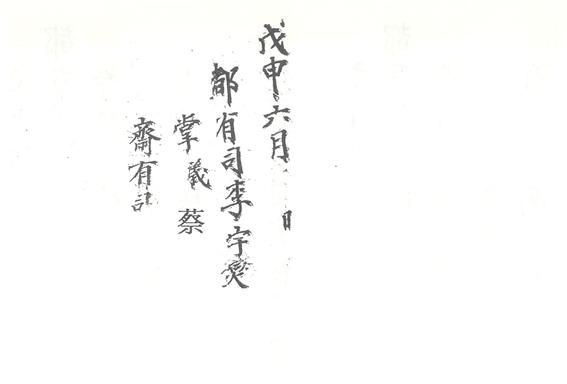 戊申六月 日
都有司李宇燮
掌議 蔡
齋有司